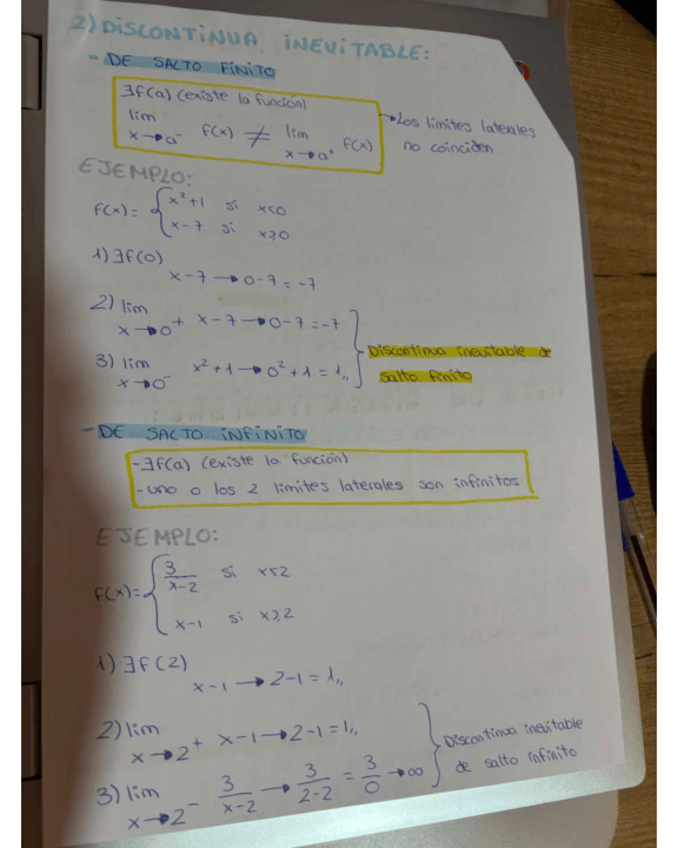 2) DISCONTINUA INEVITABLE:
- DE SALTO FINITO
∃f(a) (existe la función)
lim x→a⁻ f(x) ≠ lim x→a⁺ f(x) → Los límites laterales no coinciden
EJEMPLO:
f(x) = { x²+1 si x<0
x-7 si x≥0
1) ∃f(0)
x-7 → 0-7 = -7
2) lim x→0⁺ x-7 → 0-7 = -7
3) lim x→0⁻ x²+1 → 0²+1 = 1,,
} Discontinua inevitable de
salto finito
- DE SALTO INFINITO
- ∃f(a) (existe la función)
- uno o los 2 límites laterales son infinitos
EJEMPLO:
f(x) = { 3/(x-2) si x<2
x-1 si x≥2
1) ∃f(2)
x-1 → 2-1 = 1,,
2) lim x→2⁺ x-1 → 2-1 = 1,,
3) lim x→2⁻ 3/(x-2) → 3/(2-2) = 3/0 → ∞
} Discontinua inevitable
de salto infinito